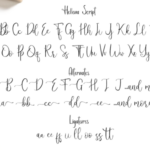 Script
Bb Cc Dd Ee Ff Gg Hh Ii Jj Kk Ll
Oo Pp Qq Rr Ss Tt Uu Vv Ww Xx Yy
Alternates
B C D E F G H I J and m
a bb cc dd ee and more
Ligatures
aa ee ff ii ll oo ss tt